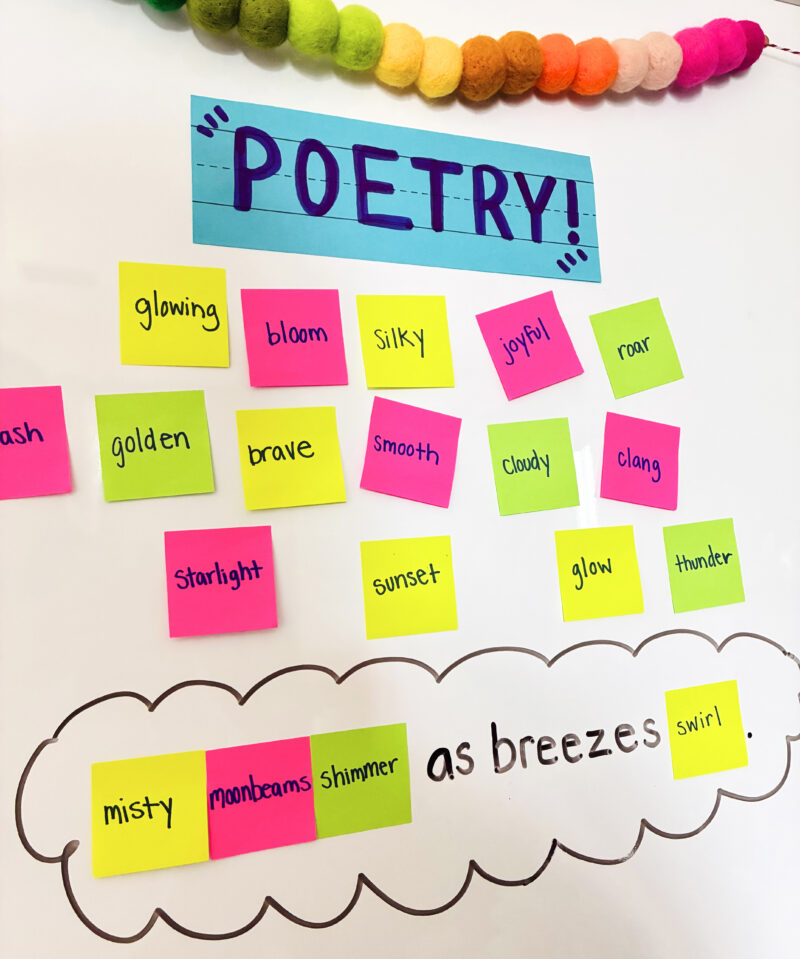 POETRY!
glowing bloom silky joyful roar
ash golden brave smooth cloudy clang
starlight sunset glow thunder
misty moonbeams shimmer as breezes swirl.